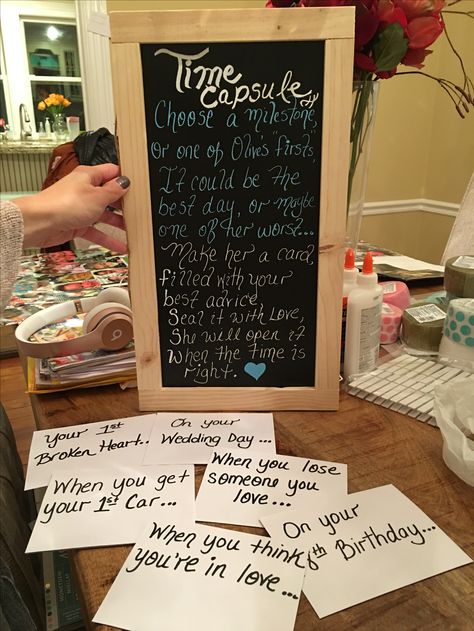 Time
Capsule
Choose a milestone,
Or one of Olive's "firsts",
It could be the
best day, or maybe
one of her worst...
Make her a card,
filled with your
best advice,
Seal it with Love,
She will open it
When the time is
right.
Your 1st
Broken Heart...
On your
Wedding Day...
When you get
your 1st Car...
When you lose
someone you
love...
When you think
you're in love...
On your
Birthday...